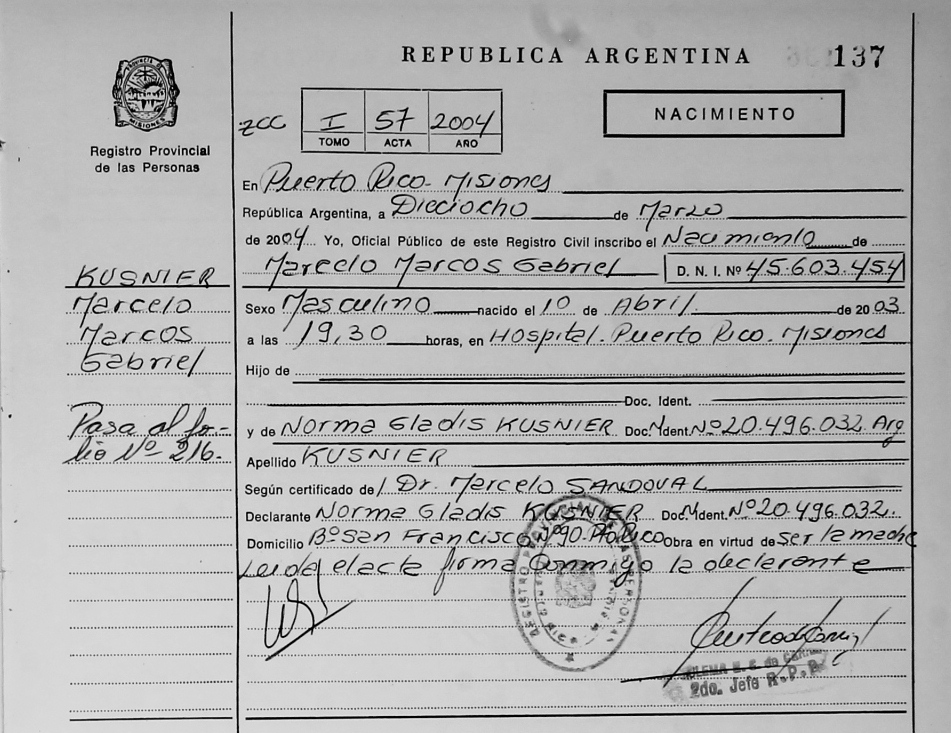 REPUBLICA ARGENTINA
137
PROVINCIA DE
MISIONES
Registro Provincial
de las Personas
zcc I 57 2004
TOMO ACTA AÑO
NACIMIENTO
En Puerto Rico - Misiones
República Argentina, a Dieciocho de Marzo
de 2004 Yo, Oficial Público de este Registro Civil inscribo el Nacimiento de
Marcelo Marcos Gabriel D. N. I. Nº 45.603.454
Sexo Masculino nacido el 10 de Abril de 2003
a las 19,30 horas, en Hospital. Puerto Rico. Misiones
Hijo de
Doc. Ident.
y de Norma Gladis KUSNIER Doc. Ident. Nº 20.496.032. Arg
Apellido KUSNIER
Según certificado de Dr. Marcelo SANDOVAL
Declarante Norma Gladis KUSNIER Doc. Ident. Nº 20.496.032.
Domicilio Bº San Francisco Nº 90 - Pto Rico Obra en virtud de ser la madre
Leida el acta firma conmigo la declarante
KUSNIER
Marcelo
Marcos
Gabriel
Pasa al fo-
lio Nº 216.
REGISTRO PROVINCIAL DE LAS PERSONAS
2do. Jefe R.P.P.